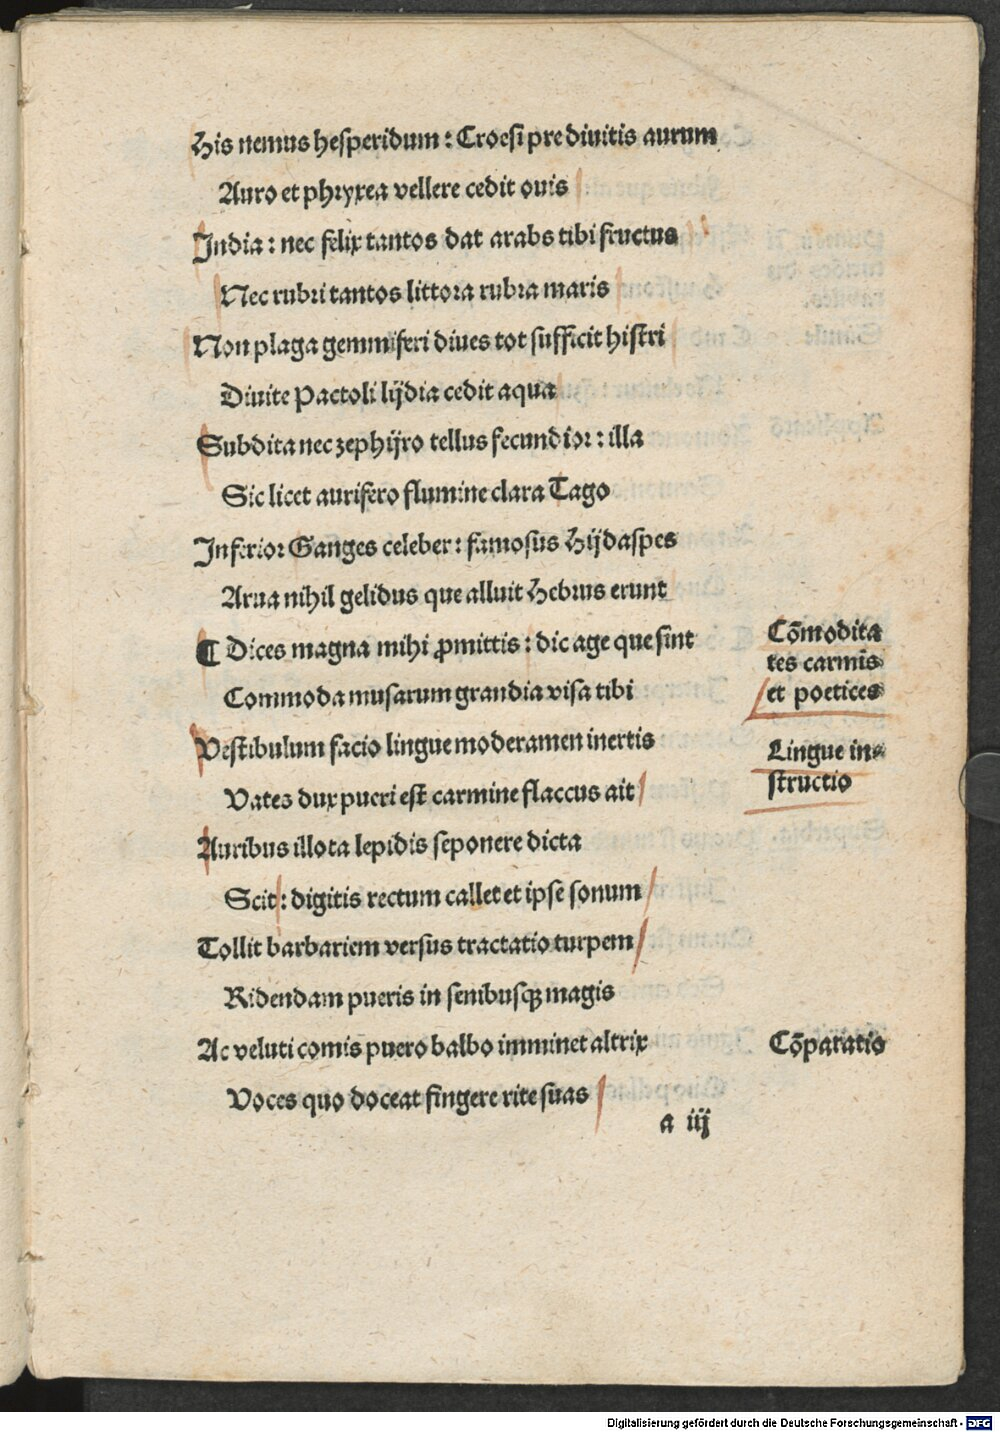 His nemus hesperidum : Croesi pre diuitis aurum
Auro et phryxea vellere cedit ouis
India : nec felix tantos dat arabs tibi fructus
Nec rubri tantos littora rubra maris
Non plaga gemmiferi diues tot sufficit histri
Diuite Pactoli lijdia cedit aqua
Subdita nec zephijro tellus fecundior : illa
Sic licet aurifero flumine clara Tago
Inferior Ganges celeber : famosus Hijdaspes
Arua nihil gelidus que alluit Hebrus erunt
¶ Dices magna mihi ꝓmittis : dic age que sint
Commoda musarum grandia visa tibi
Vestibulum facio lingue moderamen inertis
Vates dux pueri est carmine flaccus ait
Auribus illota lepidis seponere dicta
Scit : digitis rectum callet et ipse sonum
Tollit barbariem versus tractatio turpem
Ridendam pueris in senibusqꝫ magis
Ac veluti comis puero balbo imminet altrix
Voces quo doceat fingere rite suas
a iij
Cōmodita
tes carmīs
et poetices
Lingue in⸗
structio
Cōparatio
Digitalisierung gefördert durch die Deutsche Forschungsgemeinschaft - DFG